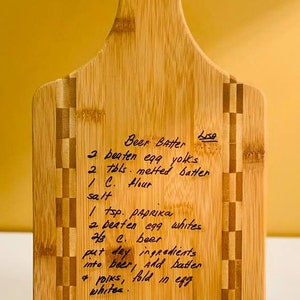 Beer Batter Lisa
2 beaten egg yolks
2 tbls. melted batter
1 C. flour
salt
1 tsp. paprika
2 beaten egg whites
2/3 C. beer
put dry ingredients
into beer, add batter
& yolks, fold in egg
whites.